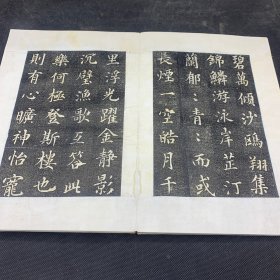 碧萬頃沙鷗翔集
錦鱗游泳岸芷汀
蘭郁〻青〻而或
長煙一空皓月千
里浮光躍金靜影
沉璧漁歌互答此
樂何極登斯樓也
則有心曠神怡寵